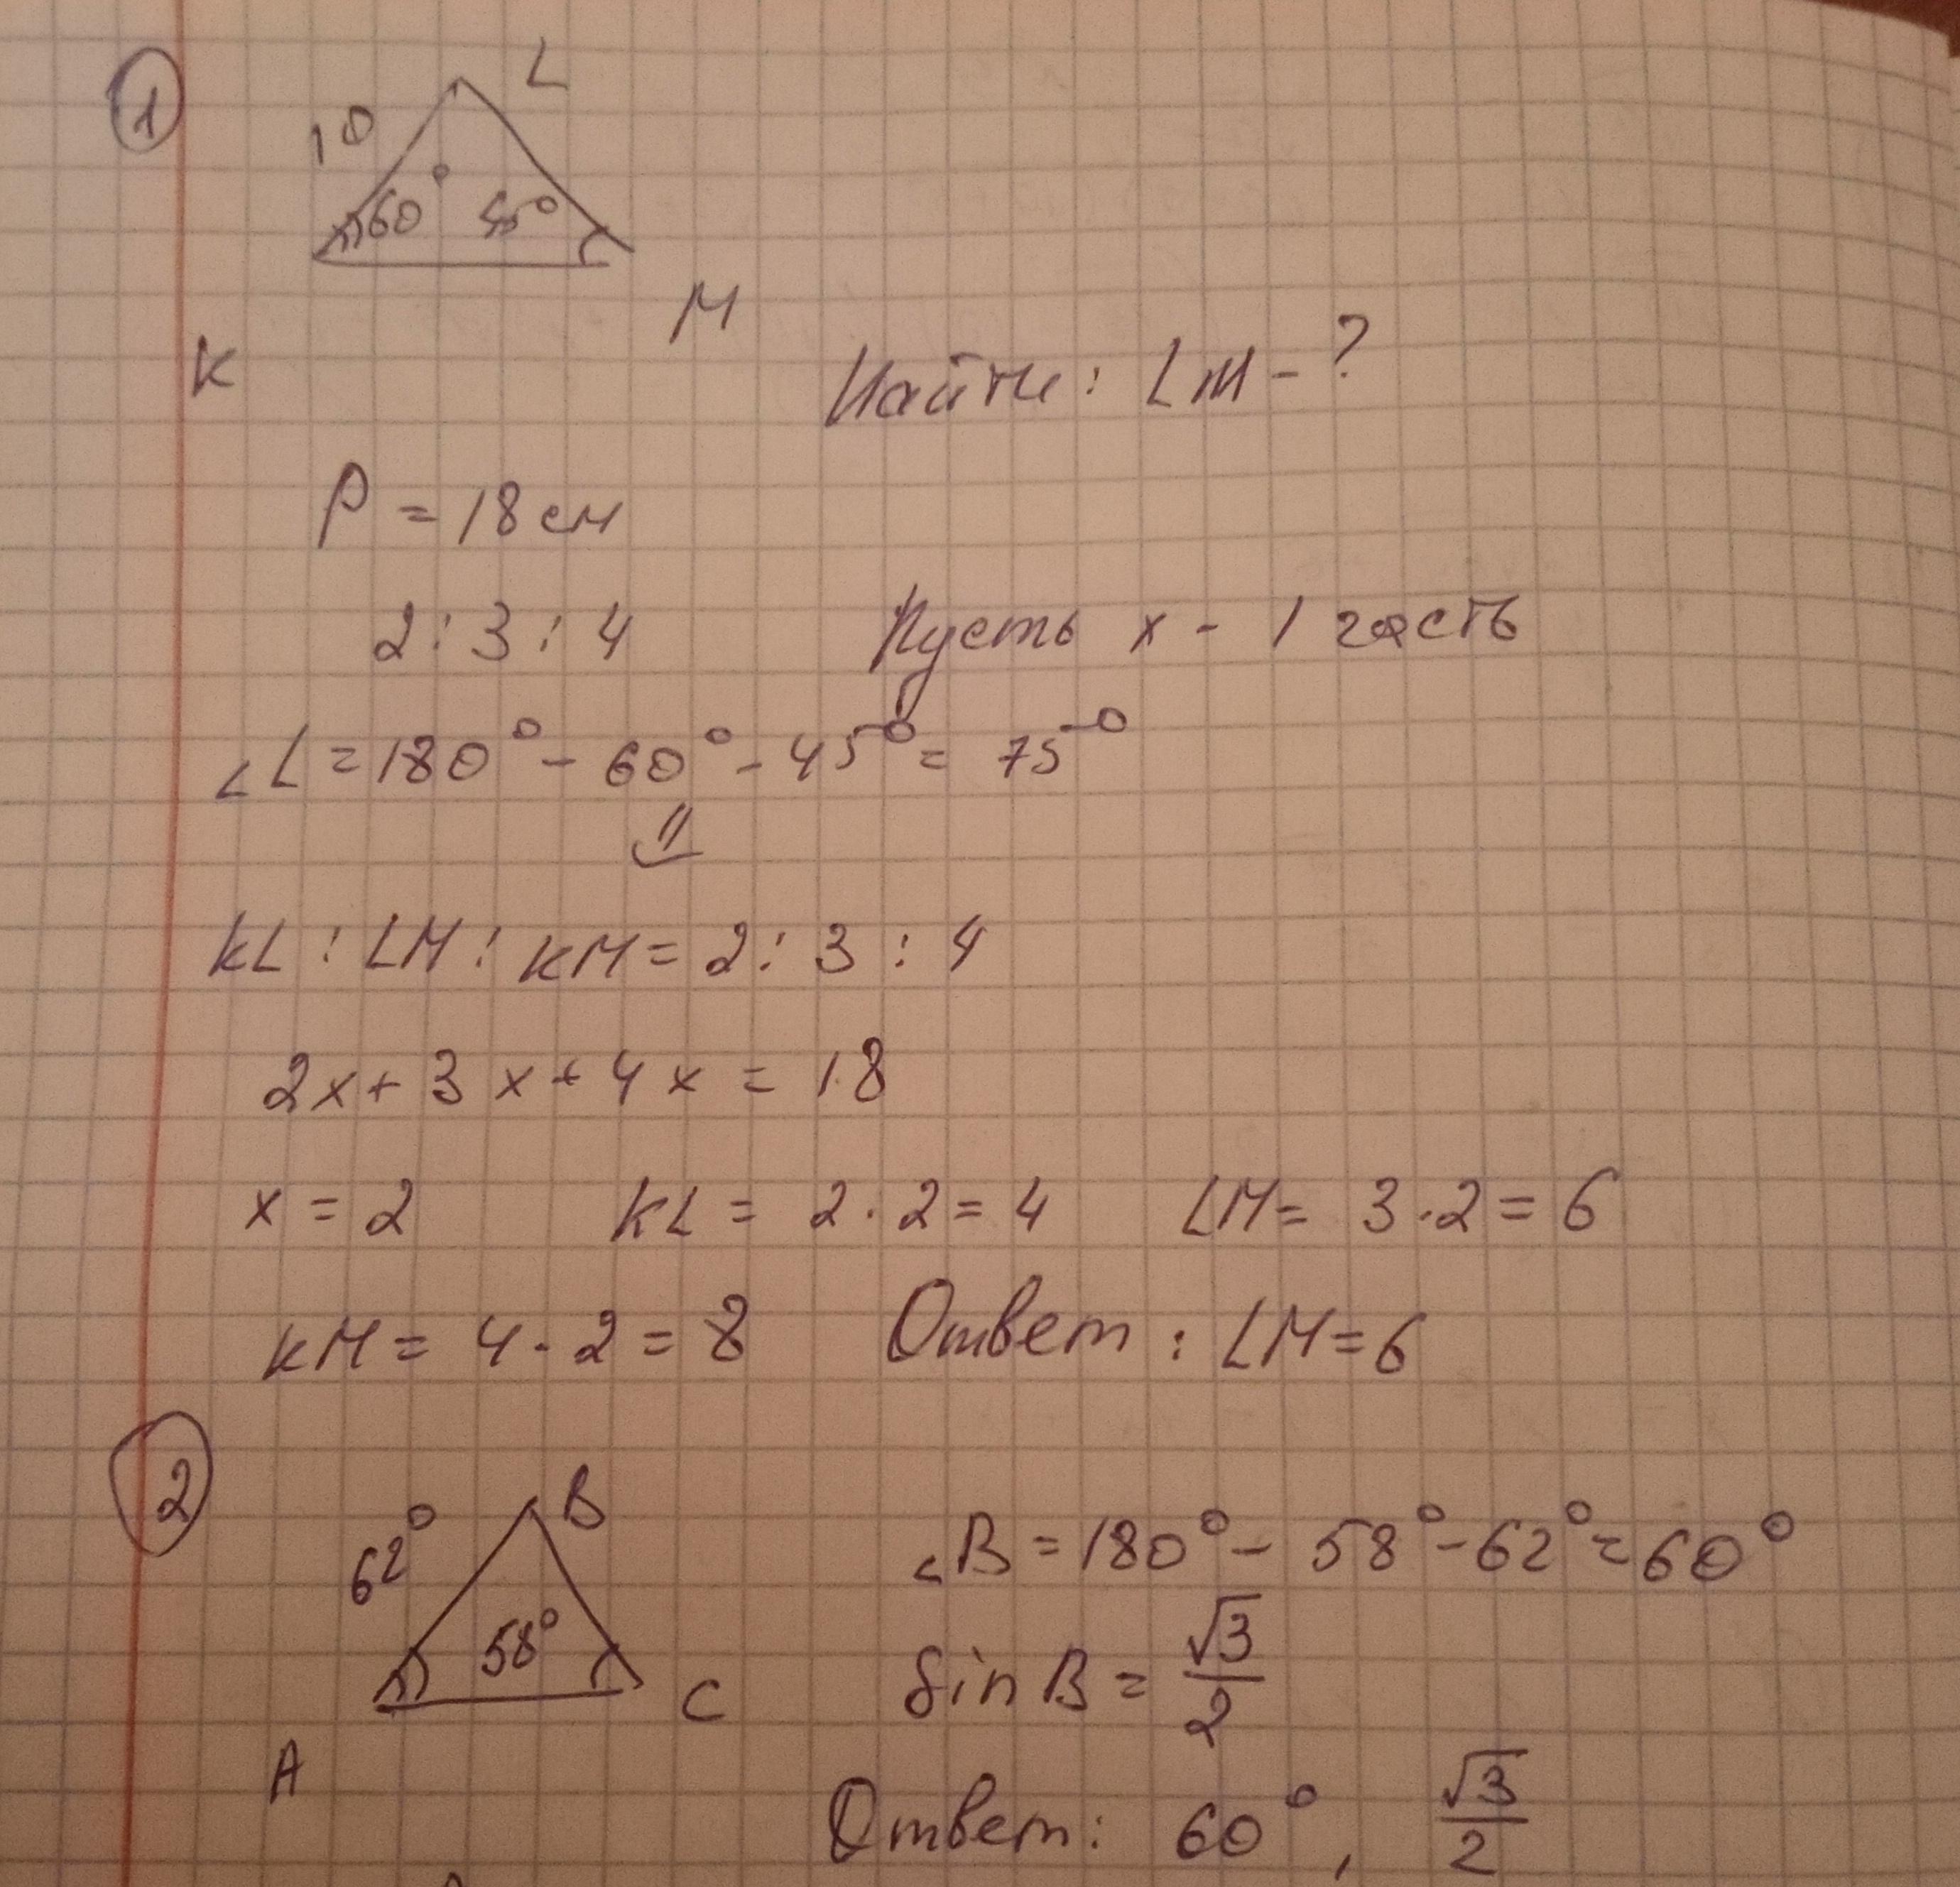 1
L
10
60° 45°
M
K
Найти: LM - ?
P = 18 см
2 : 3 : 4 Пусть x - 1 часть
∠L = 180° - 60° - 45° = 75°
KL : LM : KM = 2 : 3 : 4
2x + 3x + 4x = 18
x = 2 KL = 2 · 2 = 4 LM = 3 · 2 = 6
KM = 4 · 2 = 8 Ответ : LM = 6
2
B
62°
58°
C
A
∠B = 180° - 58° - 62° = 60°
sin B = √3/2
Ответ: 60°, √3/2